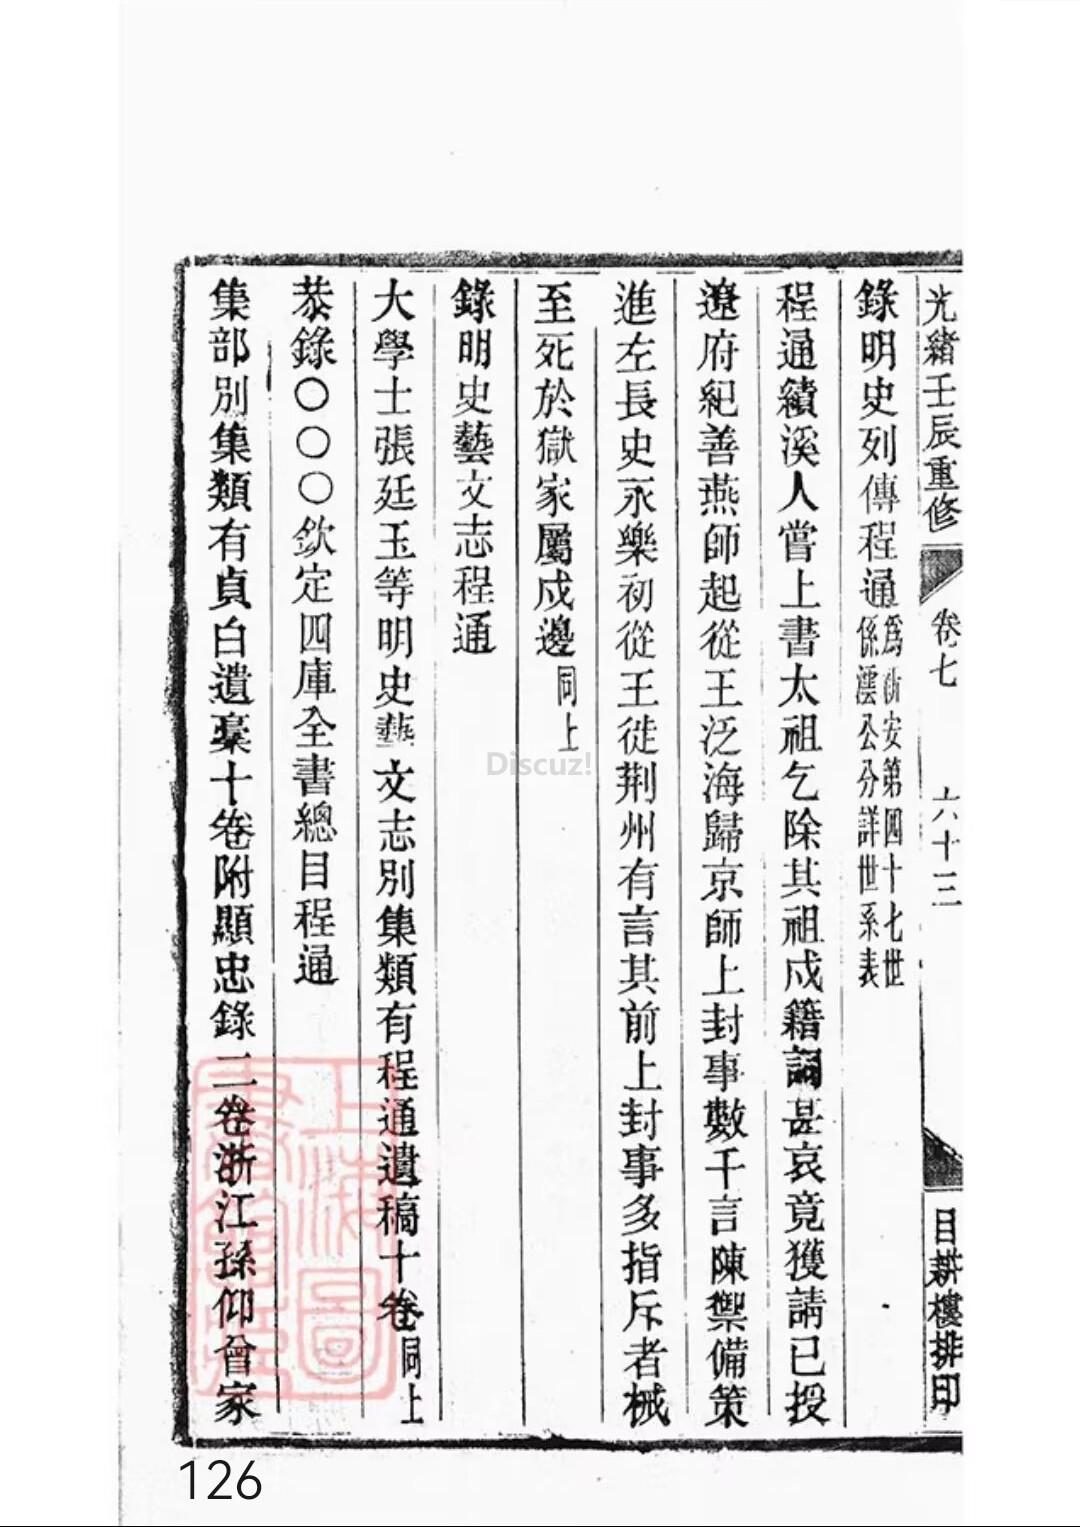 光緒壬辰重修 卷七 六十三 目耕樓排印
錄明史列傳程通為新安第四十七世係澐公分詳世系表
程通績溪人嘗上書太祖乞除其祖戍籍詞甚哀竟獲請已授
遼府紀善燕師起從王泛海歸京師上封事數千言陳禦備策
進左長史永樂初從王徙荆州有言其前上封事多指斥者械
至死於獄家屬戍邊同上
錄明史藝文志程通
大學士張廷玉等明史藝文志別集類有程通遺稿十卷同上
恭錄〇〇〇欽定四庫全書總目程通
集部別集類有貞白遺稾十卷附顯忠錄二卷浙江孫仰曾家
上海圖書館藏
Discuz!
126